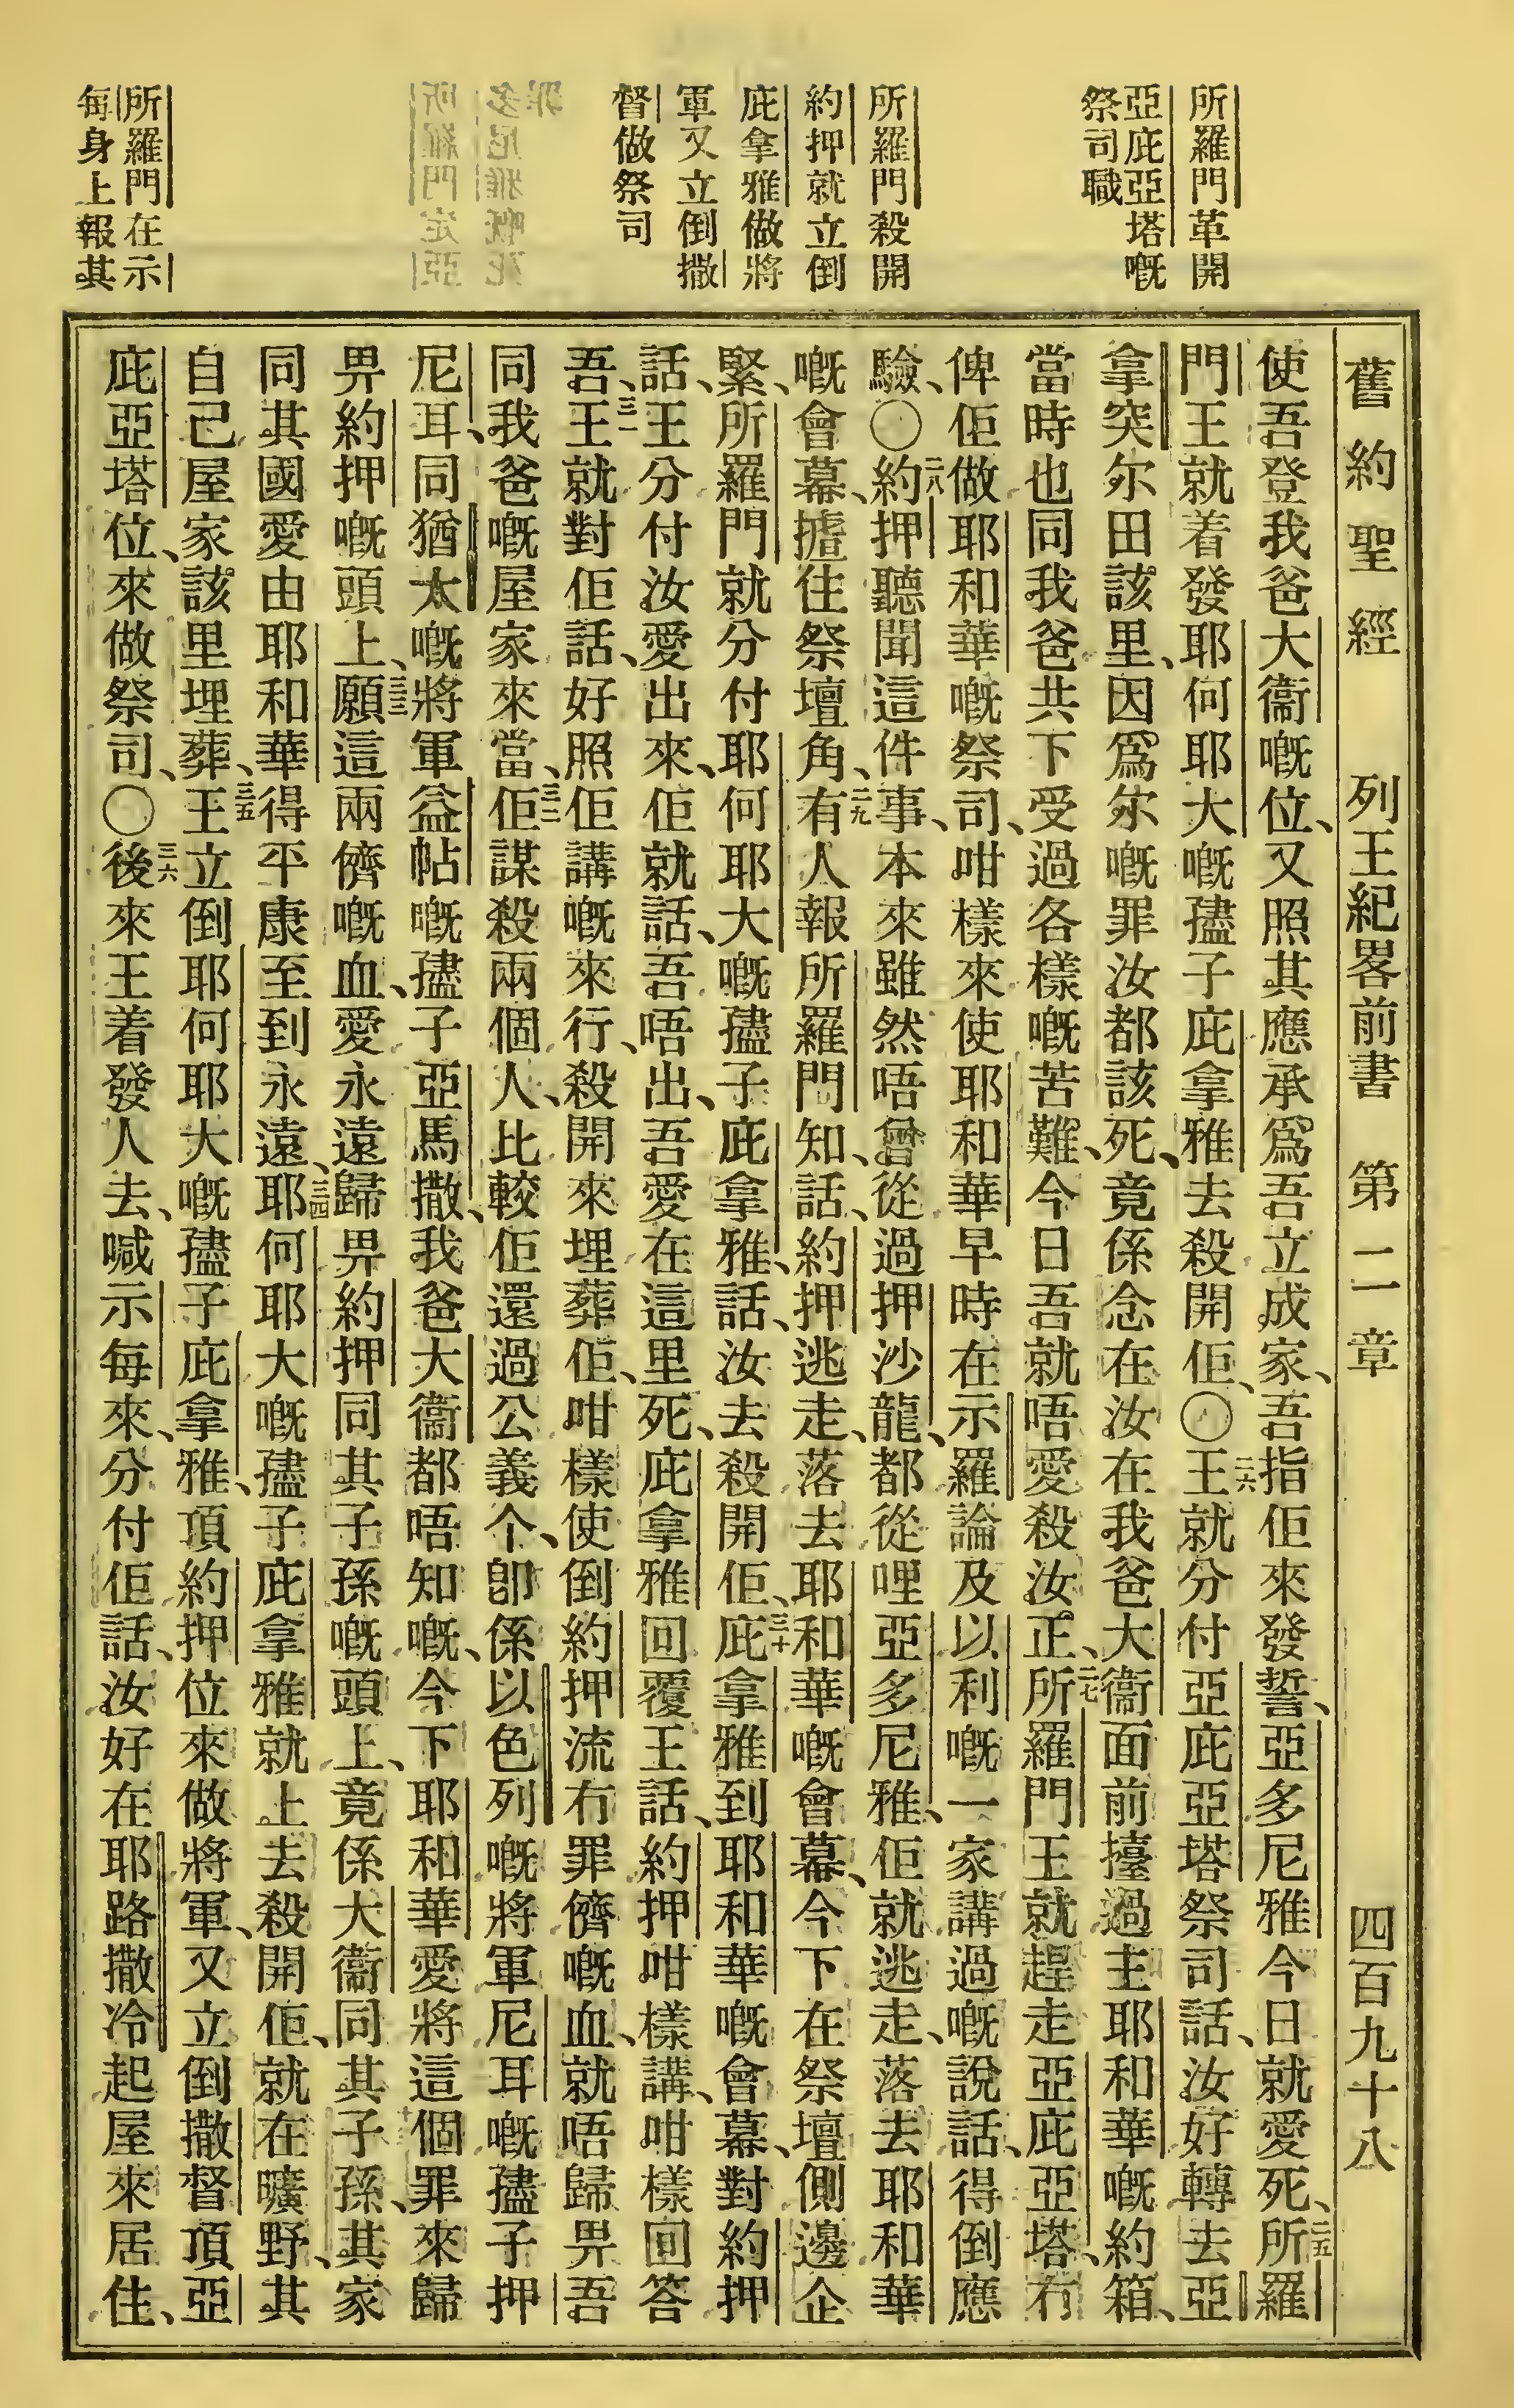 所羅門革開
亞庇亞塔嘅
祭司職
所羅門殺開
約押就立倒
庇拿雅做將
軍又立倒撒
督做祭司
所羅門在示
每身上報其
舊約聖經 列王紀畧前書 第二章 四百九十八
使吾登我爸大衞嘅位、又照其應承爲吾立成家、吾指佢來發誓、亞多尼雅今日就愛死、二五所羅
門王就着發耶何耶大嘅孻子庇拿雅去殺開佢、〇二六王就分付亞庇亞塔祭司話、汝好轉去亞
拿突尔田該里、因爲尔嘅罪汝都該死、竟係念在汝在我爸大衞面前擡過主耶和華嘅約箱、
當時也同我爸共下受過各樣嘅苦難、今日吾就唔愛殺汝正、二七所羅門王就趕走亞庇亞塔、冇
俾佢做耶和華嘅祭司、咁樣來使耶和華早時在示羅論及以利嘅一家講過嘅說話、得倒應
驗、〇二八約押聽聞這件事、本來雖然唔曾從過押沙龍、都從哩亞多尼雅、佢就逃走、落去耶和華
嘅會幕、揸住祭壇角、二九有人報所羅門知、話、約押逃走、落去耶和華嘅會幕、今下在祭壇側邊企
緊、所羅門就分付耶何耶大嘅孻子庇拿雅、話、汝去殺開佢、三十庇拿雅到耶和華嘅會幕、對約押
話、王分付汝愛出來、佢就話、吾唔出、吾愛在這里死、庇拿雅回覆王話、約押咁樣講、咁樣回答
吾、三一王就對佢話、好照佢講嘅來行、殺開來埋葬佢、咁樣使倒約押流冇罪儕嘅血、就唔歸畀吾
同我爸嘅屋家來當、三二佢謀殺兩個人、比較佢還過公義个、卽係以色列嘅將軍尼耳嘅孻子押
尼耳、同猶太嘅將軍益帖嘅孻子亞馬撒、我爸大衞都唔知嘅、今下耶和華愛將這個罪來歸
畀約押嘅頭上、三三願這兩儕嘅血、愛永遠歸畀約押同其子孫嘅頭上、竟係大衞同其子孫、其家
同其國愛由耶和華得平康至到永遠、三四耶何耶大嘅孻子庇拿雅就上去殺開佢、就在曠野、其
自己屋家該里埋葬、三五王立倒耶何耶大嘅孻子庇拿雅、頂約押位來做將軍、又立倒撒督頂亞
庇亞塔位、來做祭司、〇三六後來王着發人去、喊示每來、分付佢話、汝好在耶路撒冷起屋來居住、